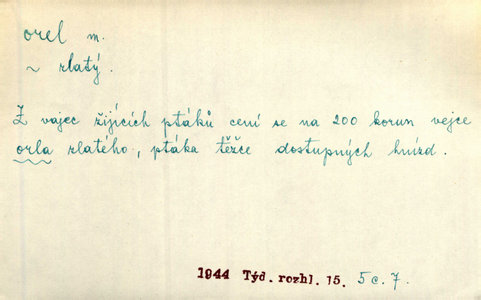 orel m.
~ zlatý.
Z vajec žijících ptáků cení se na 200 korun vejce
orla zlatého, ptáka těžce dostupných hnízd.
1944 Týd. rozhl. 15. 5 c. 7.